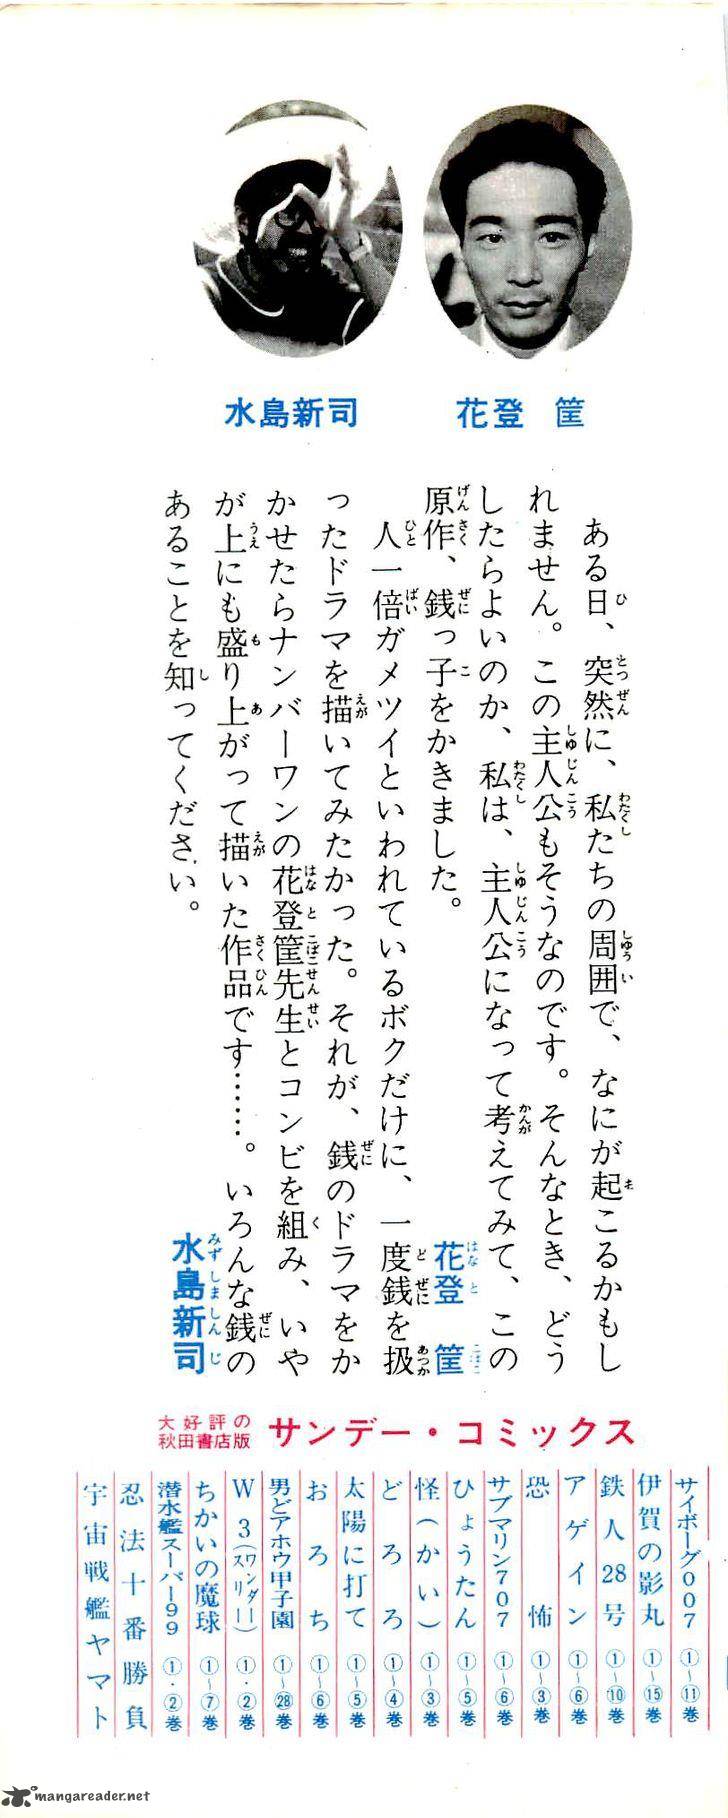 花登　筐
水島新司
ある日、突然に、私たちの周囲で、なにが起こるかもし
れません。この主人公もそうなのです。そんなとき、どう
したらよいのか、私は、主人公になって考えてみて、この
原作、銭っ子をかきました。
花登　筐
人一倍ガメツイといわれているボクだけに、一度銭を扱
ったドラマを描いてみたかった。それが、銭のドラマをか
かせたらナンバーワンの花登筐先生とコンビを組み、いや
が上にも盛り上がって描いた作品です……。いろんな銭の
あることを知ってください。
水島新司
大好評の
秋田書店版
サンデー・コミックス
サイボーグ007 ①～⑪巻
伊賀の影丸 ①～⑮巻
鉄人28号 ①～⑩巻
アゲイン ①～⑥巻
恐怖 ①～③巻
サブマリン707 ①～⑥巻
ひょうたん ①～⑤巻
怪（かい） ①～③巻
どろろ ①～④巻
太陽に打て ①～⑤巻
おろち ①～⑥巻
男どアホウ甲子園 ①～㉘巻
W3（スリーワンダー） ①・②巻
ちかいの魔球 ①～⑦巻
潜水艦スーパー99 ①・②巻
忍法十番勝負
宇宙戦艦ヤマト
mangareader.net